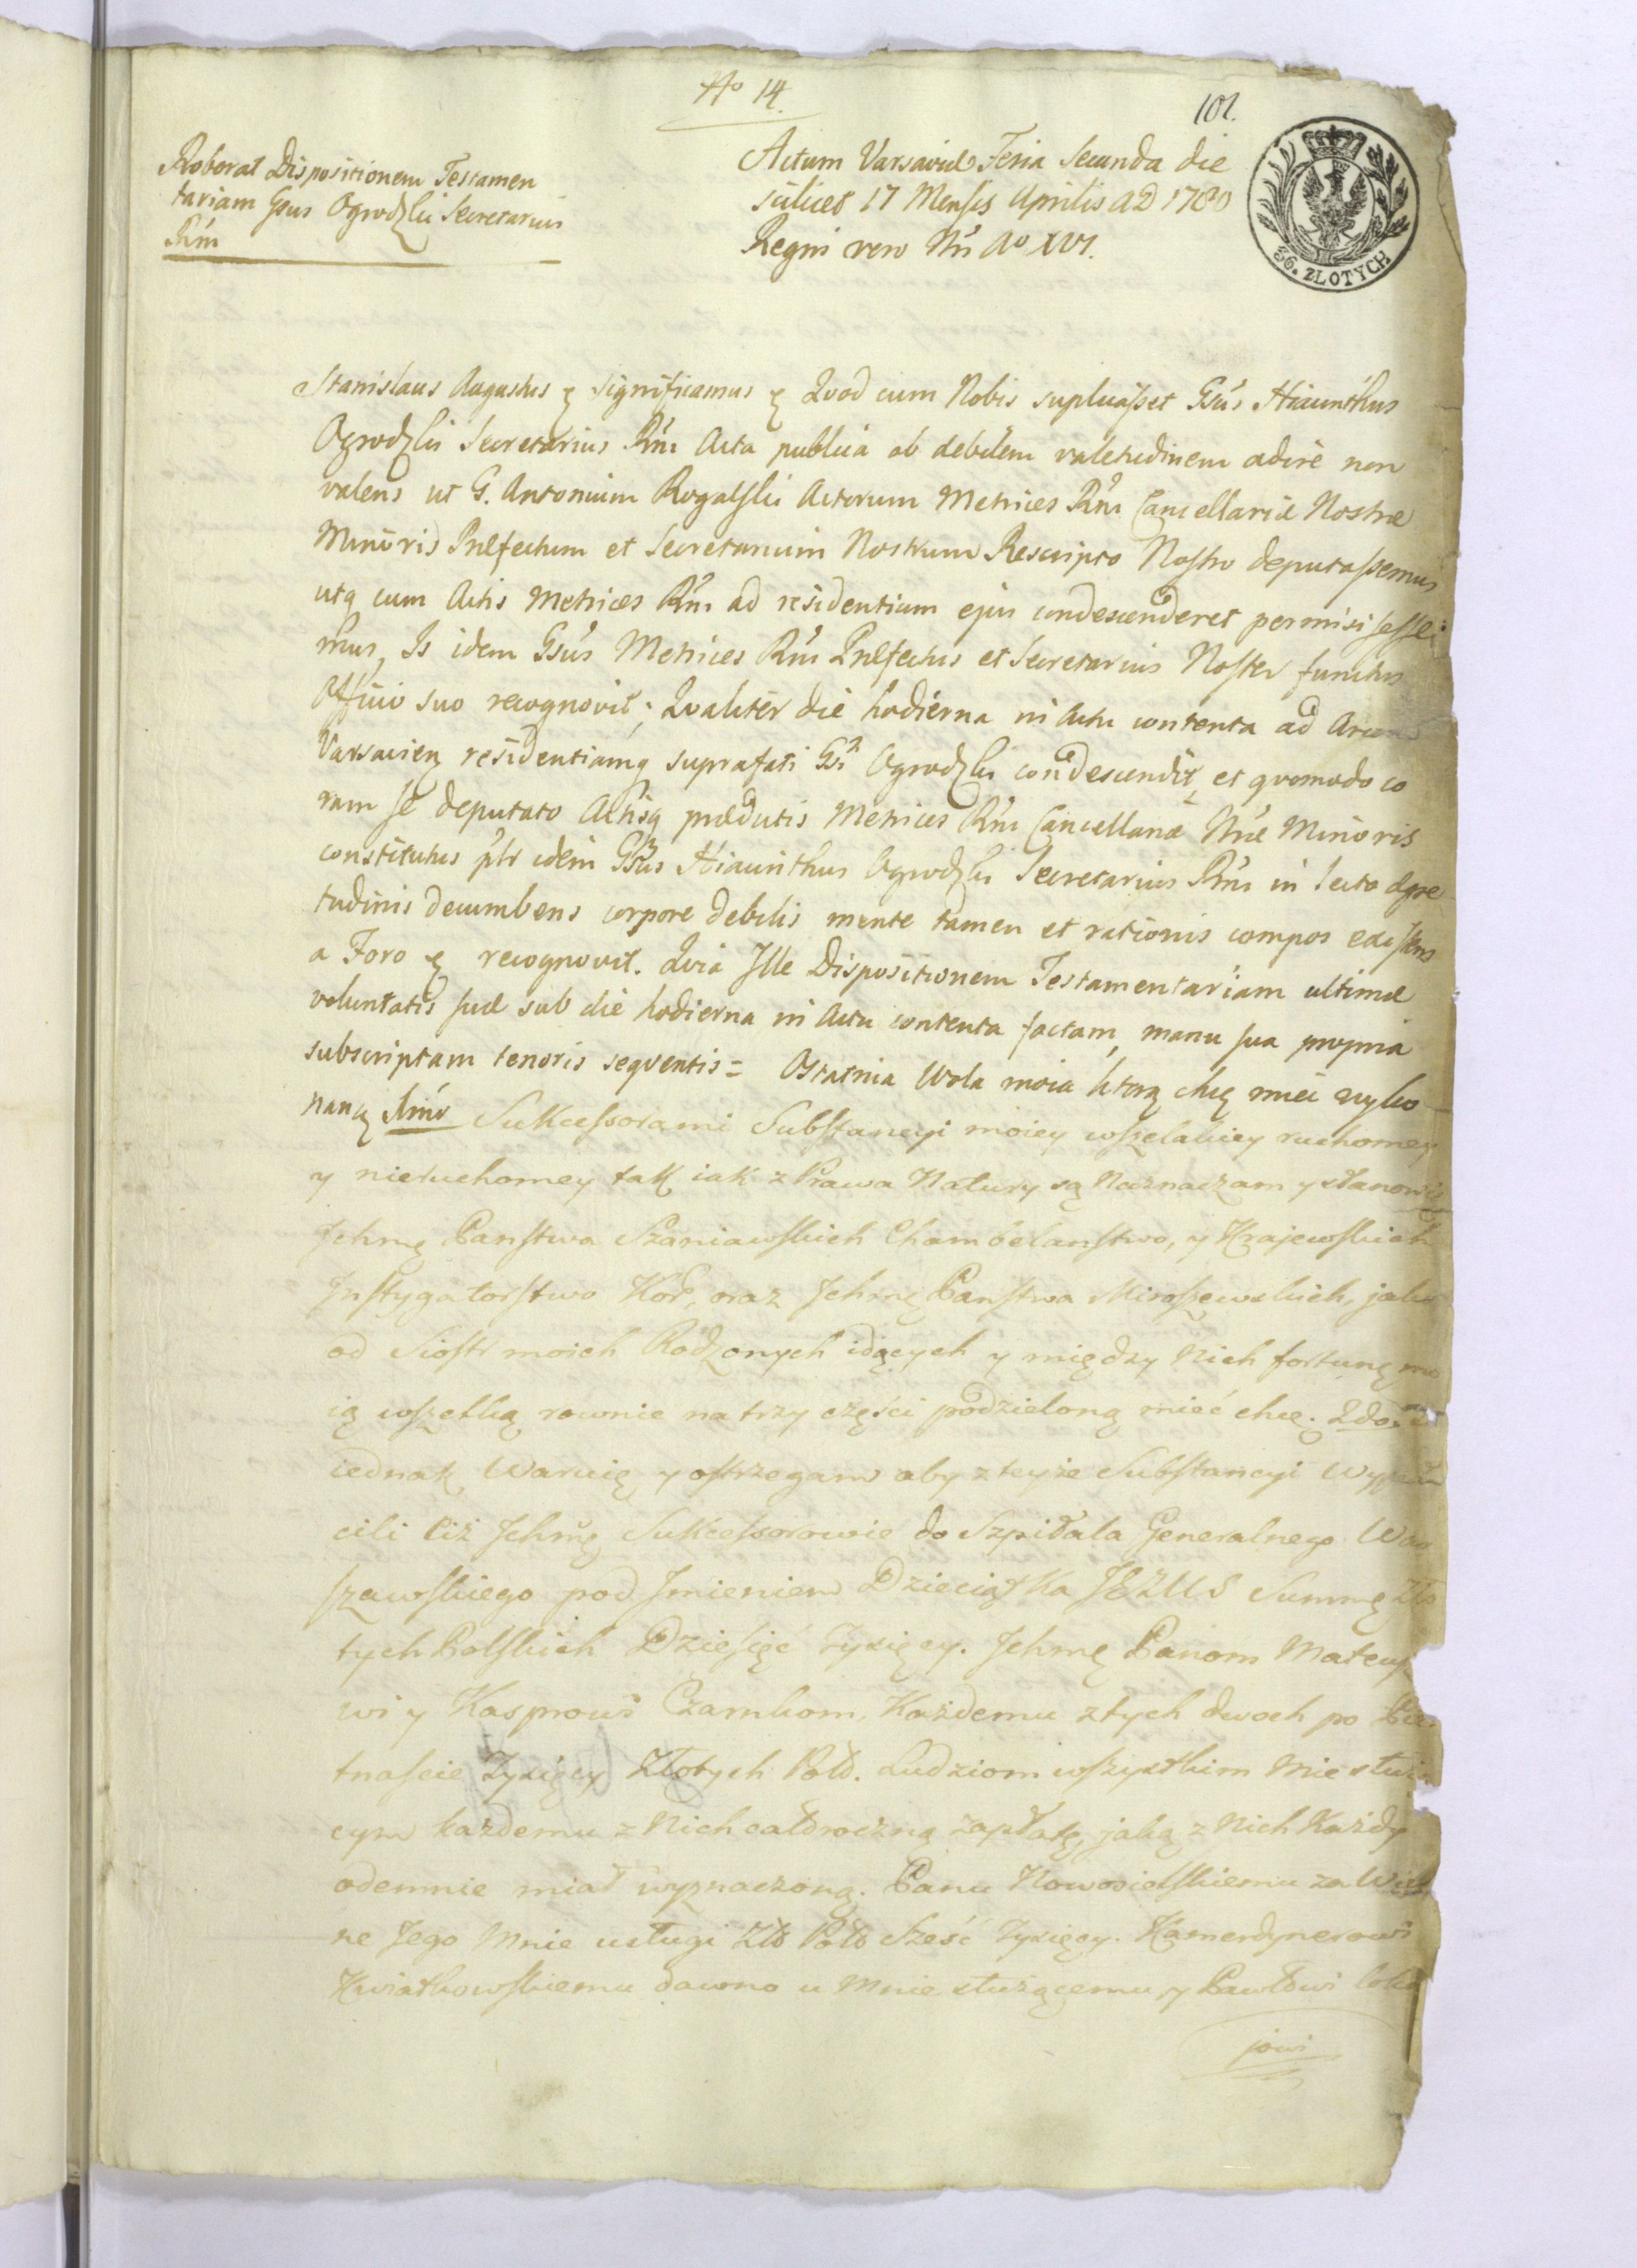 No 14.
101.
Roborat Dispositionem Testamen
tariam Gsus Ogrodzki Secretarius
Rńi
Actum Varsaviæ Feria Secunda die
scilicet 17 Mensis Aprilis AD 1780
Regni vero Nri Ao XVI.
36. ZŁOTYCH
Stanislaus Augustus ę significamus ę Quod cum Nobis suplicasset Gsus Hiacinthus
Ogrodzki Secretarius Rni Acta publica ob debilem valetudinem adire non
valens ut G. Antonium Rogalski Actorum Metrices Rni Cancellariæ Nostræ
Minoris Præfectum et Secretarium Nostrum Rescripto Nostro deputassemus
utq cum Actis Metrices Rni ad residentiam ejus condescenderet permisi
mus, Is idem Gsus Metrices Rni Præfectus et Secretarius Noster functus
Officio suo recognovit; Qualiter die hodierna in Actu contenta ad
Varsavien residentiamq suprafati Gsi Ogrodzki condescendit, et quomodo co
ram se deputato Actisq prædictis Metrices Rni Cancellariæ Nræ Minoris
constitutus plr idem Gsus Hiacinthus Ogrodzki Secretarius Rni in lecto ægri
tudinis decumbens corpore debilis mente tamen et rationis compos existens
a Foro ę recognovit. Quia Ille Dispositionem Testamentariam ultimæ
voluntatis suæ sub die hodierna in Actu contenta factam, manu sua propria
subscriptam tenoris sequentis = Ostatnia Wola moia którą chcę mieć wyko
naną Imo Sukcessorami Substancyi moiey wszelakiey ruchomey
y nieruchomey tak iak z Prawa Natury są Naznaczam y stanowię
Jchmę Panstwa Szaniawskich Chambelanstwo, y Krajewskich
Instygatorstwo Kor, oraz Jchmę Panstwa Miroszewskich, jako
od Siostr moich Rodzonych idących y między Nich fortunę mo
ią wszetką rownie na trzy części podzieloną mieć chcę. 2do
iednak Waruię y ostrzegam aby z teyże Substancyi Wypła
cili Ciż Jchmę Sukcessorowie do Szpitala Generalnego War
szawskiego pod Jmieniem Dzieciątka JEZUS Summę Zło
tych Polskich Dziesięć Tysięcy. Jchmę Panom Mateuszo
wi y Kasprowi Czarnkom, Każdemu z tych dwoch po Pię
tnaście Tysięcy Złotych Pols. Ludziom wszystkim Mnie służą
cym każdemu z Nich całoroczną zapłatę, jaką z Nich Każdy
odemnie miał wyznaczoną. Panu Nowosielskiemu za
ne Jego Mnie usługi Zło Pols Sześć Tysięcy. Kamerdynerowi
Kwiatkowskiemu dawno u Mnie służącemu, y Pawłowi Loka
jowi